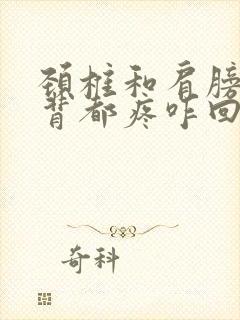 颈柱和肩膀
背都疼咋回
奇科